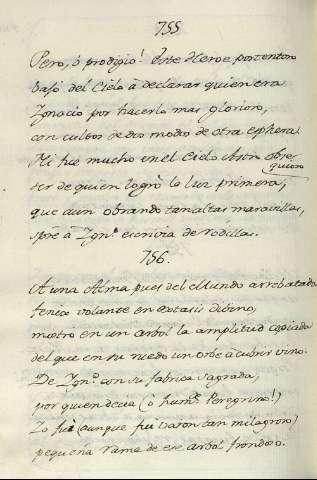 755
Pero, ò prodigio! Este Heroe portentoso
baxò del Cielo à declarar quien era
Ignacio por hacerlo mas glorioso,
con cultos de dos modos de otra esphera.
Ni fue mucho en el Cielo obse-
quioso
ser de quien logrò la luz primera,
que aun obrando tan altas maravillas,
spre à Ign.º escrivia de rodillas.
756.
A una Alma pues del Mundo arrebatada
fenix volante en extasis divino,
mostrò en un arbol la amplitud copiada
del que en su ruedo un Orbe à cubrir vino.
De Ign.º con su fabrica sagrada,
por quien decia (ò hum.e Peregrino!)
Yo fui (aunque fui varon tan milagroso)
pequeña rama de ese arbol frondoso.